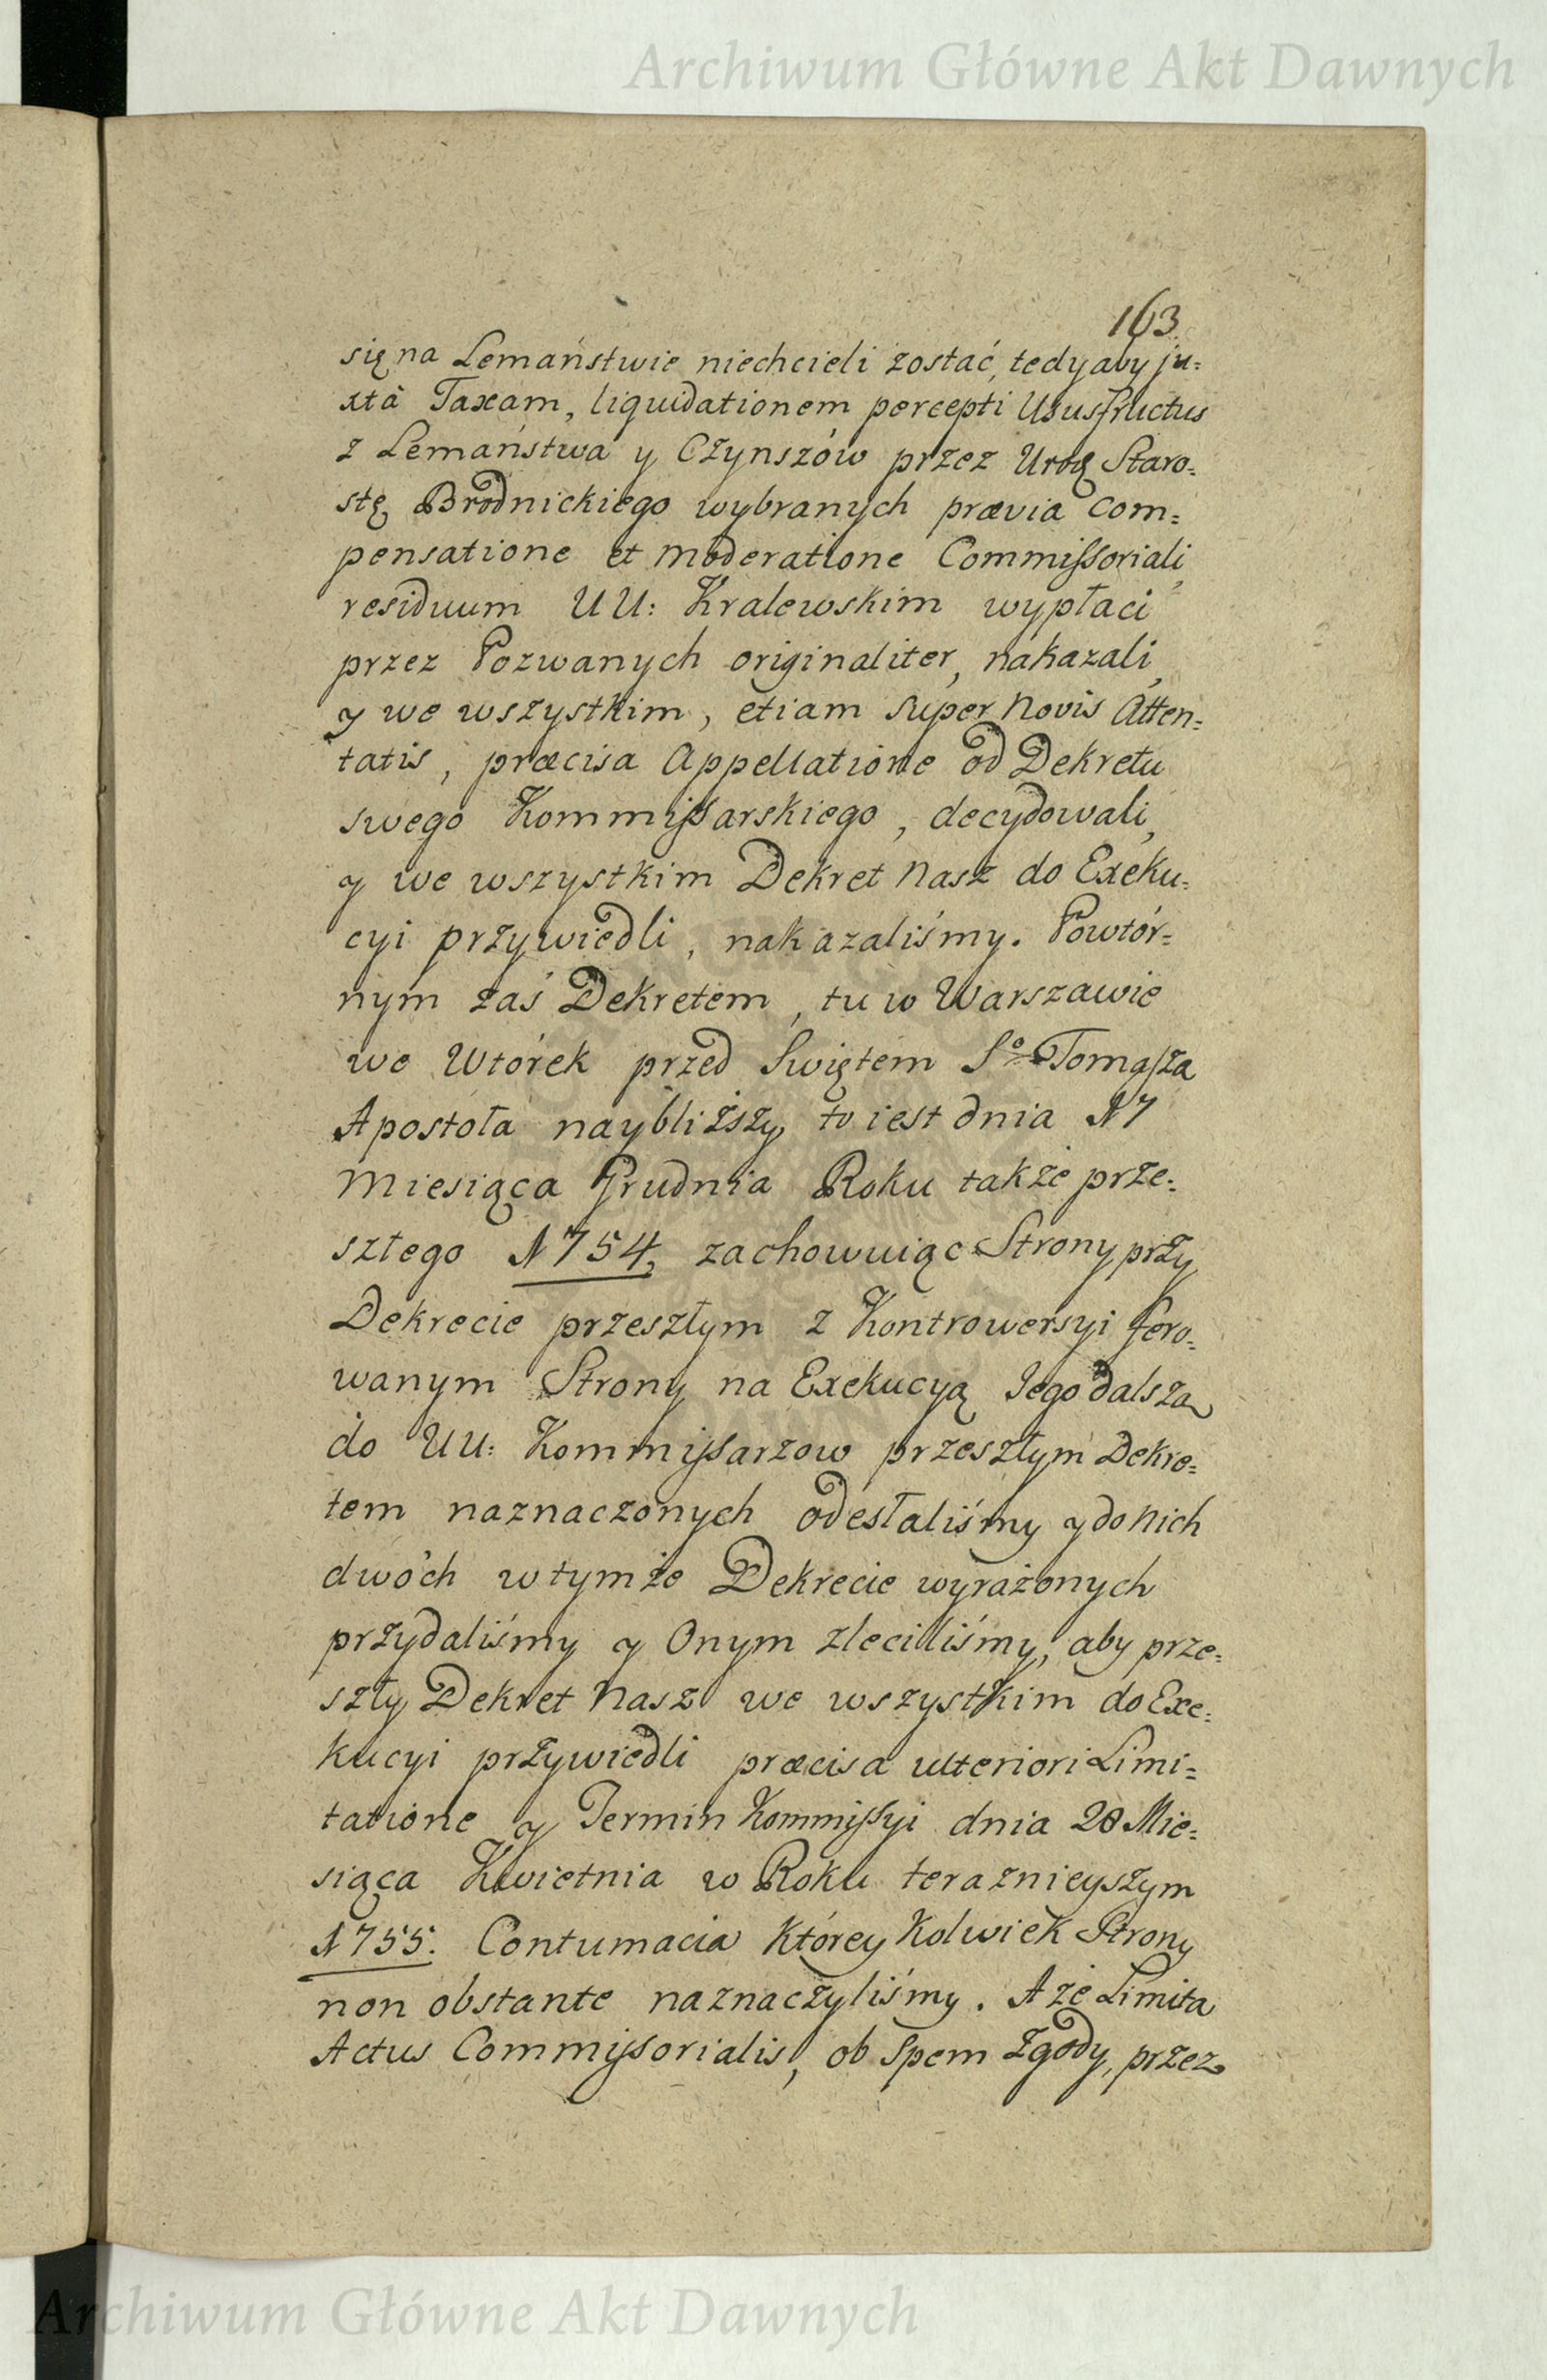 Archiwum Główne Akt Dawnych
163
się na Lemaństwie niechcieli zostać, tedy aby ju=
xtà Taxam, liquidationem percepti Ususfructus
z Lemaństwa y Czynszów przez Urog Staro=
stę Brodnickiego wybranych prævia Com=
pensatione et moderatione Commissoriali,
residuum UU: Kralewskim wypłaci
przez Pozwanych originaliter, nakazali,
y we wszystkim, etiam super Novis Atten=
tatis, præcisa Appellatione od Dekretu
swego Kommissarskiego, decydowali,
y we wszystkim Dekret Nasz do Exeku=
cyi przywiedli, nakazaliśmy. Powtór=
nym zaś Dekretem, tu w Warszawie
we Wtórek przed Swiętem So Tomasza
Apostoła naybliższy, to iest dnia 17
Miesiąca Grudnia Roku także prze=
szłego 1754, zachowuiąc Strony przy
Dekrecie przeszłym z Kontrowersyi fero=
wanym Strony na Exekucyą Jego dalszą
do UU: Kommissarzow przeszłym Dekre=
tem naznaczonych odesłaliśmy y do Nich
dwóch w tymże Dekrecie wyrażonych
przydaliśmy y Onym zleciliśmy, aby prze=
szły Dekret Nasz we wszystkim do Exe=
kucyi przywiedli præcisa ulteriori Limi=
tatione y Termin Kommissyi dnia 28 Mie=
siąca Kwietnia w Roku teraznieyszym
1755. Contumacia którey kolwiek Strony
non obstante naznaczyliśmy. A że Limita
Actus Commissorialis, ob Spem Zgody, przez
Archiwum Główne Akt Dawnych